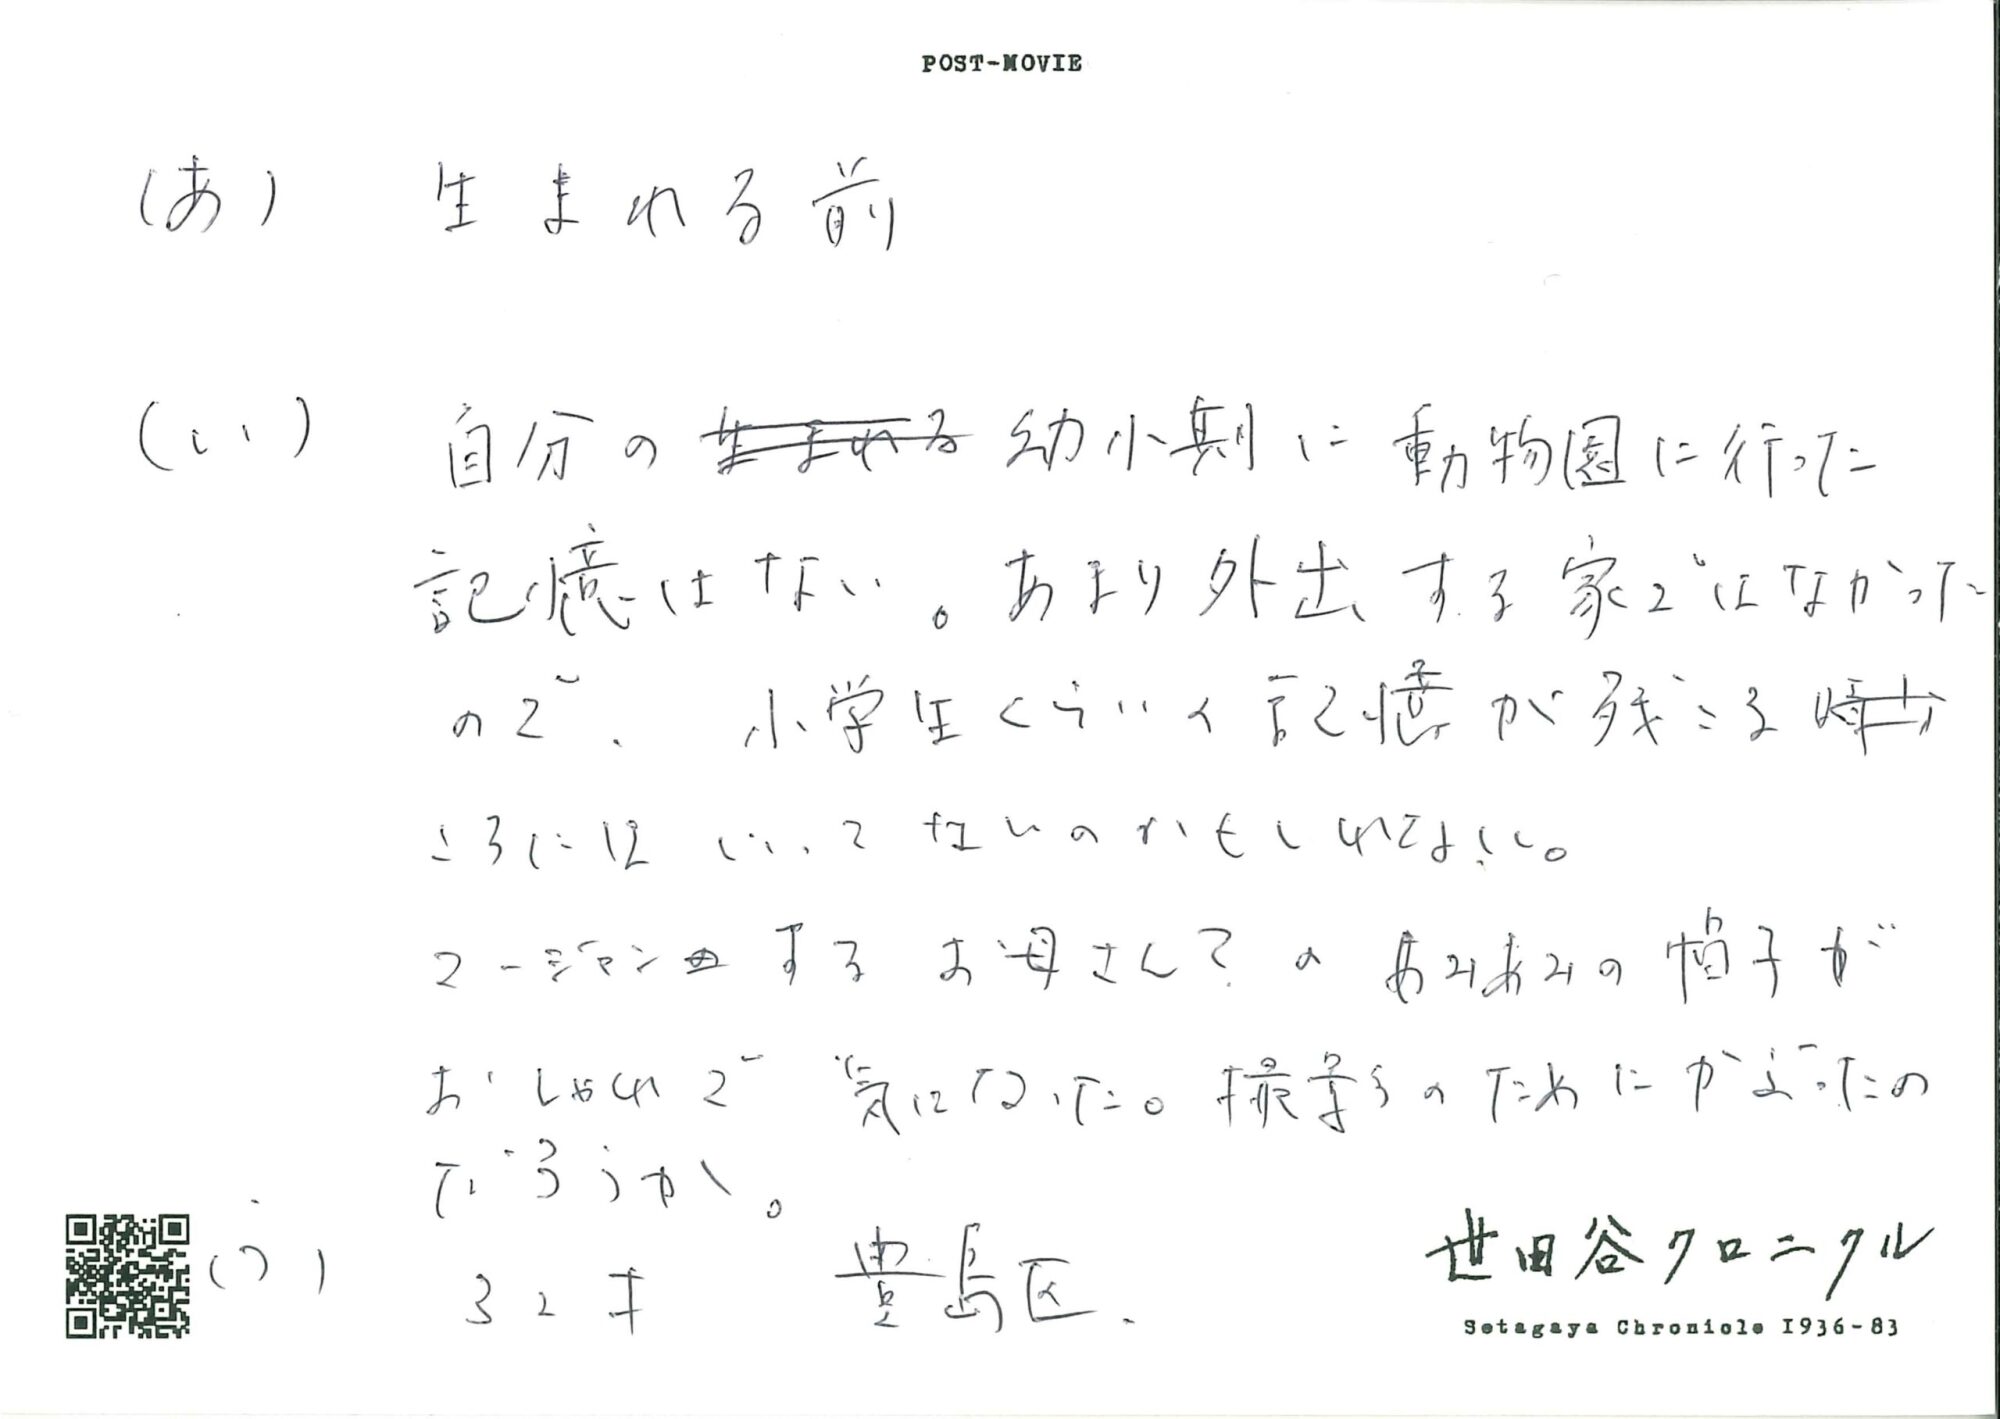 POST-MOVIE
(あ) 生まれる前
(い) 自分の生まれる幼小期に動物園に行った
記憶はない。あまり外出する家ではなかった
ので、小学生くらいく記憶が残こる
ころにはいってないのかもしれない。
マージャンするお母さん?のあみあみの帽子が
おしゃれで気になった。撮影のためにかぶったの
だろうか。
(う) 32才 豊島区.
世田谷クロニクル
Setagaya Chronicle 1936-83